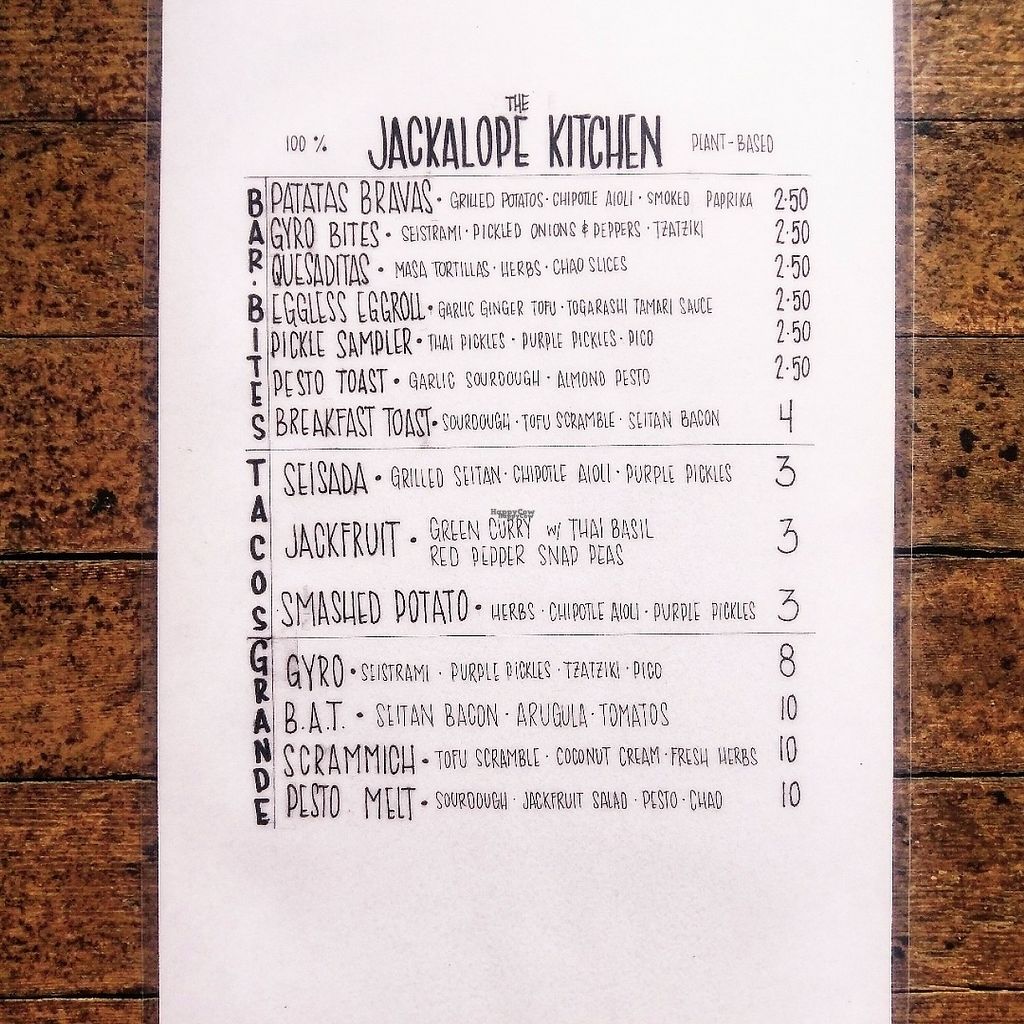 THE
100 % JACKALOPE KITCHEN PLANT-BASED
BAR·BITES
PATATAS BRAVAS · GRILLED POTATOS · CHIPOTLE AIOLI · SMOKED PAPRIKA 2·50
GYRO BITES · SEISTRAMI · PICKLED ONIONS & PEPPERS · TZATZIKI 2·50
QUESADITAS · MASA TORTILLAS · HERBS · CHAO SLICES 2·50
EGGLESS EGGROLL · GARLIC GINGER TOFU · TOGARASHI TAMARI SAUCE 2·50
PICKLE SAMPLER · THAI PICKLES · PURPLE PICKLES · PICO 2·50
PESTO TOAST · GARLIC SOURDOUGH · ALMOND PESTO 2·50
BREAKFAST TOAST · SOURDOUGH · TOFU SCRAMBLE · SEITAN BACON 4
TACOS
SEISADA · GRILLED SEITAN · CHIPOTLE AIOLI · PURPLE PICKLES 3
JACKFRUIT · GREEN CURRY w/ THAI BASIL 3
RED PEPPER SNAP PEAS
SMASHED POTATO · HERBS · CHIPOTLE AIOLI · PURPLE PICKLES 3
GRANDE
GYRO · SEISTRAMI · PURPLE PICKLES · TZATZIKI · PICO 8
B.A.T. · SEITAN BACON · ARUGULA · TOMATOS 10
SCRAMMICH · TOFU SCRAMBLE · COCONUT CREAM · FRESH HERBS 10
PESTO MELT · SOURDOUGH · JACKFRUIT SALAD · PESTO · CHAO 10
HappyCow